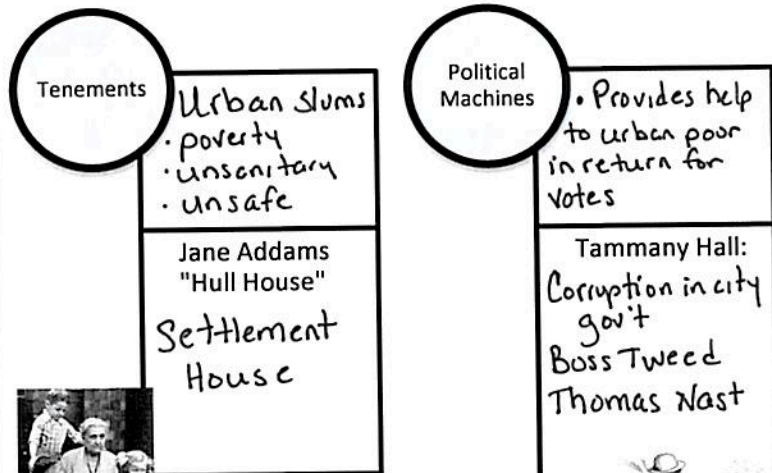 Tenements
Urban slums
· poverty
· unsanitary
· unsafe
Jane Addams
"Hull House"
Settlement
House
Political
Machines
· Provides help
to urban poor
in return for
votes
Tammany Hall:
Corruption in city
gov't
Boss Tweed
Thomas Nast